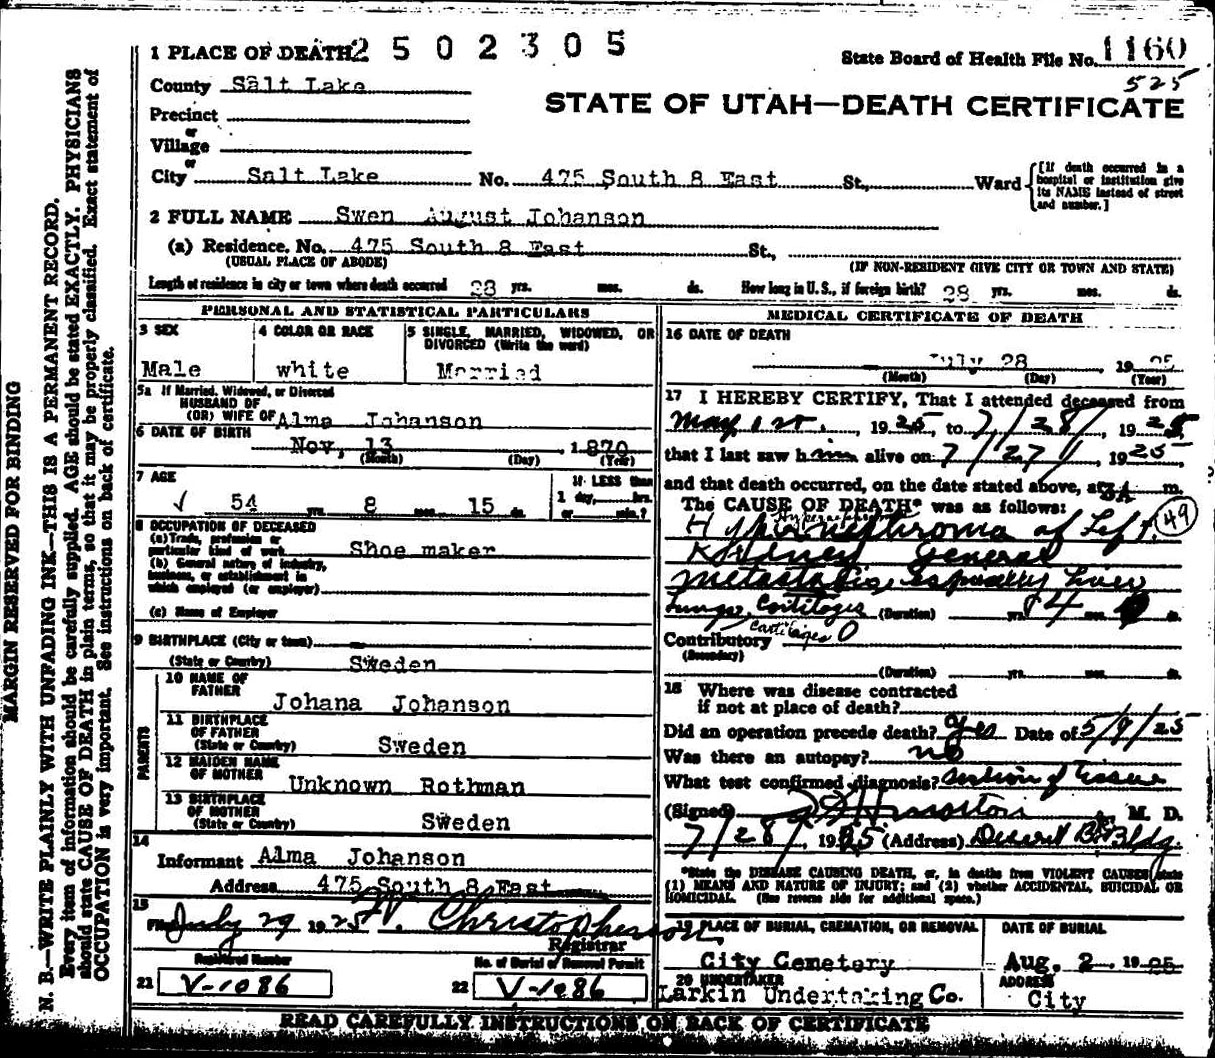 1 PLACE OF DEATH 2 5 0 2 3 0 5
State Board of Health File No. 1160
525
County Salt Lake
STATE OF UTAH—DEATH CERTIFICATE
Precinct
or
Village
or
City Salt Lake No. 475 South 8 East St., Ward
[If death occurred in a hospital or institution give its NAME instead of street and number.]
2 FULL NAME Swen August Johanson
(a) Residence. No. 475 South 8 East St.,
(USUAL PLACE OF ABODE) (IF NON-RESIDENT GIVE CITY OR TOWN AND STATE)
Length of residence in city or town where death occurred 28 yrs. mos. ds. How long in U.S., if foreign birth? 28 yrs. mos. ds.
PERSONAL AND STATISTICAL PARTICULARS
3 SEX
Male
4 COLOR OR RACE
white
5 SINGLE, MARRIED, WIDOWED, OR
DIVORCED (Write the word)
Married
5a If Married, Widowed, or Divorced
HUSBAND OF
(OR) WIFE OF Alma Johanson
6 DATE OF BIRTH
Nov, 13 1870
(Month) (Day) (Year)
7 AGE
54 yrs. 8 mos. 15 ds.
If LESS than
1 day, hrs.
or min.?
8 OCCUPATION OF DECEASED
(a) Trade, profession or
particular kind of work Shoe maker
(b) General nature of industry,
business, or establishment in
which employed (or employer)
(c) Name of Employer
9 BIRTHPLACE (City or town)
(State or Country) Sweden
PARENTS
10 NAME OF
FATHER
Johana Johanson
11 BIRTHPLACE
OF FATHER
(State or Country) Sweden
12 MAIDEN NAME
OF MOTHER
Unknown Rothman
13 BIRTHPLACE
OF MOTHER
(State or Country) Sweden
14
Informant Alma Johanson
Address 475 South 8 East
15
July 29 1925 W. Christopherson
Registrar
Registered Number
21 V-1086
No. of Burial or Removal Permit
22 V-1086
MEDICAL CERTIFICATE OF DEATH
16 DATE OF DEATH
July 28 1925
(Month) (Day) (Year)
17 I HEREBY CERTIFY, That I attended deceased from
May 1st, 1925, to 7/28/, 1925,
that I last saw him alive on 7/27/, 1925,
and that death occurred, on the date stated above, at 3A m.
The CAUSE OF DEATH* was as follows:
Hypernephroma
Hypernephroma of Left 49
Kidney General
metastasis, especially Liver
Lungs, Cartilages (Duration) yrs. 4 mos. ds.
Cartilages
Contributory 0
(Secondary)
(Duration) yrs. mos. ds.
18 Where was disease contracted
if not at place of death?
Did an operation precede death? Yes Date of 5/9/25
Was there an autopsy? no
What test confirmed diagnosis? section of tissue
(Signed) M. D.
7/28/, 1925 (Address) Deseret Bk Bldg.
*State the DISEASE CAUSING DEATH, or, in deaths from VIOLENT CAUSES, state
(1) MEANS AND NATURE OF INJURY; and (2) whether ACCIDENTAL, SUICIDAL OR
HOMICIDAL. (See reverse side for additional space.)
19 PLACE OF BURIAL, CREMATION, OR REMOVAL
City Cemetery
DATE OF BURIAL
Aug. 2 1925
20 UNDERTAKER
Larkin Undertaking Co.
ADDRESS
City
READ CAREFULLY INSTRUCTIONS ON BACK OF CERTIFICATE
MARGIN RESERVED FOR BINDING
N. B.—WRITE PLAINLY WITH UNFADING INK—THIS IS A PERMANENT RECORD.
Every item of information should be carefully supplied. AGE should be stated EXACTLY. PHYSICIANS
should state CAUSE OF DEATH in plain terms, so that it may be properly classified. Exact statement of
OCCUPATION is very important. See instructions on back of certificate.